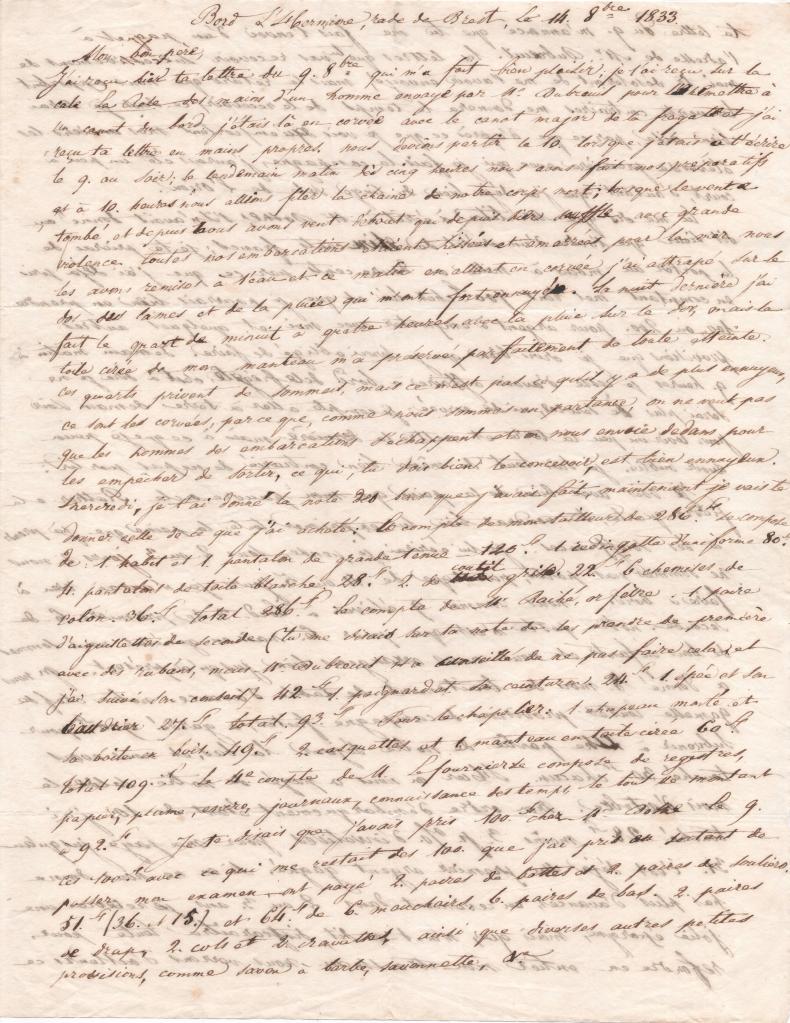 Bord L'Hermine, rade de Brest, le 14. 8bre 1833.
Mon bon père,
J'ai reçu hier ta lettre du 9. 8bre qui m'a fait bien plaisir; je l'ai reçu sur la
cale la Rose des mains d'un homme envoyé par Mr Dubreuil pour la remettre à
un canot du bord j'étais là en corvée avec le canot major de la frégate et j'ai
reçu ta lettre en mains propres. nous devions partir le 10. lorsque j'étais à t'écrire
le 9. au soir; le lendemain matin dès cinq heures nous avons fait nos préparatifs
et à 10. heures nous allions filer la chaine de notre corps mort; lorsque le vent a
tombé et depuis nous avons vent debout qui depuis hier souffle avec grande
violence. toutes nos embarcations étaient hissées et amarrées pour la mer nous
les avons remises à l'eau et ce matin en allant en corvée j'ai attrapé sur le
dos des lames et de la pluie qui m'ont fort ennuyé. la nuit dernière j'ai
fait le quart de minuit à quatre heures, avec la pluie sur le dos, mais la
toile cirée de mon manteau m'a préservé parfaitement de toute atteinte.
ces quarts privent de sommeil, mais ce n'est pas ce qu'il y a de plus ennuyeux,
ce sont les corvées, parce que, comme nous sommes en partance, on ne veut pas
que les hommes des embarcations s'échappent et on nous envoie dedans pour
les empêcher de sortir, ce qui, tu dois bien le concevoir, est bien ennuyeux.
Mercredi, je t'ai donné la note des que j'avais fait, maintenant je vais te
donner celle de ce que j'ai acheté: le compte de mon tailleur de 286.f se compose
de: 1 habit et 1 pantalon de grande tenue 120.f 1 redingotte d'uniforme 80.f
4. pantalons de toile blanche. 28.f 2. de coutil gris. 22.f 6 chemises de
coton. 36.f total 286.f le compte de Mr Baihé, orfèvre. 1 paire
d'aiguillettes de seconde (tu me disais sur ta note de les prendre de première
avec des rubans, mais Mr Dubreuil m'a conseillé de ne pas faire cela, et
j'ai suivi son conseil) 42.f 1 poignard et sa ceinture 24.f 1 épée et son
baudrier 27.f total 93.f Pour le chapelier: 1 chapeau monté et
sa boîte en bois. 49.f 2 casquettes et 1 manteau en toile cirée 60.f
total 109.f le 4e compte de M. Lefournier se compose de registres,
papier, plume, encre, journaux, connaissance des temps, le tout se montant
à 92.f Je te disais que j'avais pris 100.f chez Mr le 9.
ces 100.f avec ce qui me restait des 100. que j'ai pris au sortant de
passer mon examen ont payé 2. paires de bottes et 2. paires de souliers.
51.f (36. et 15.) et 64.f de 6 mouchoirs, 6 paires de bas. 2. paires
de draps, 2 cols et 2 cravattes, ainsi que diverses autres petites
provisions, comme savon à barbe, savonnette, &a